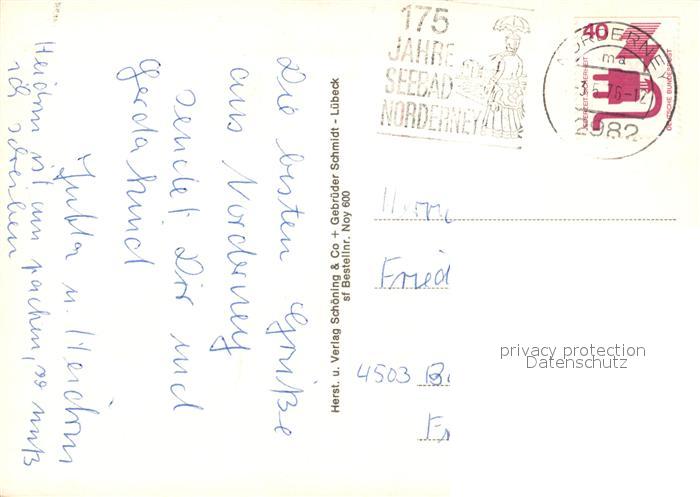 Die besten Grüße
aus Norderney
sendet Dir und
Gerda und
Jutta u. Heidrun
Heidrun ist am packen, so muß
ich schreiben
Herst. u. Verlag Schöning & Co + Gebrüder Schmidt - Lübeck
sf Bestellnr. Noy 600
175
JAHRE
SEEBAD
NORDERNEY
NORDERNEY
ma
76-12
2982
40
JEDERZEIT SICHERHEIT
DEUTSCHE BUNDESPOST
Herrn
Fried
4503 B
privacy protection
Datenschutz